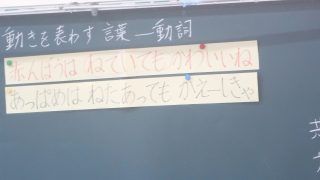 動きを表わす言葉―動詞
赤んぼうは ねていても かわいいね
あっぱめは ねたあっても かえーしきゃ